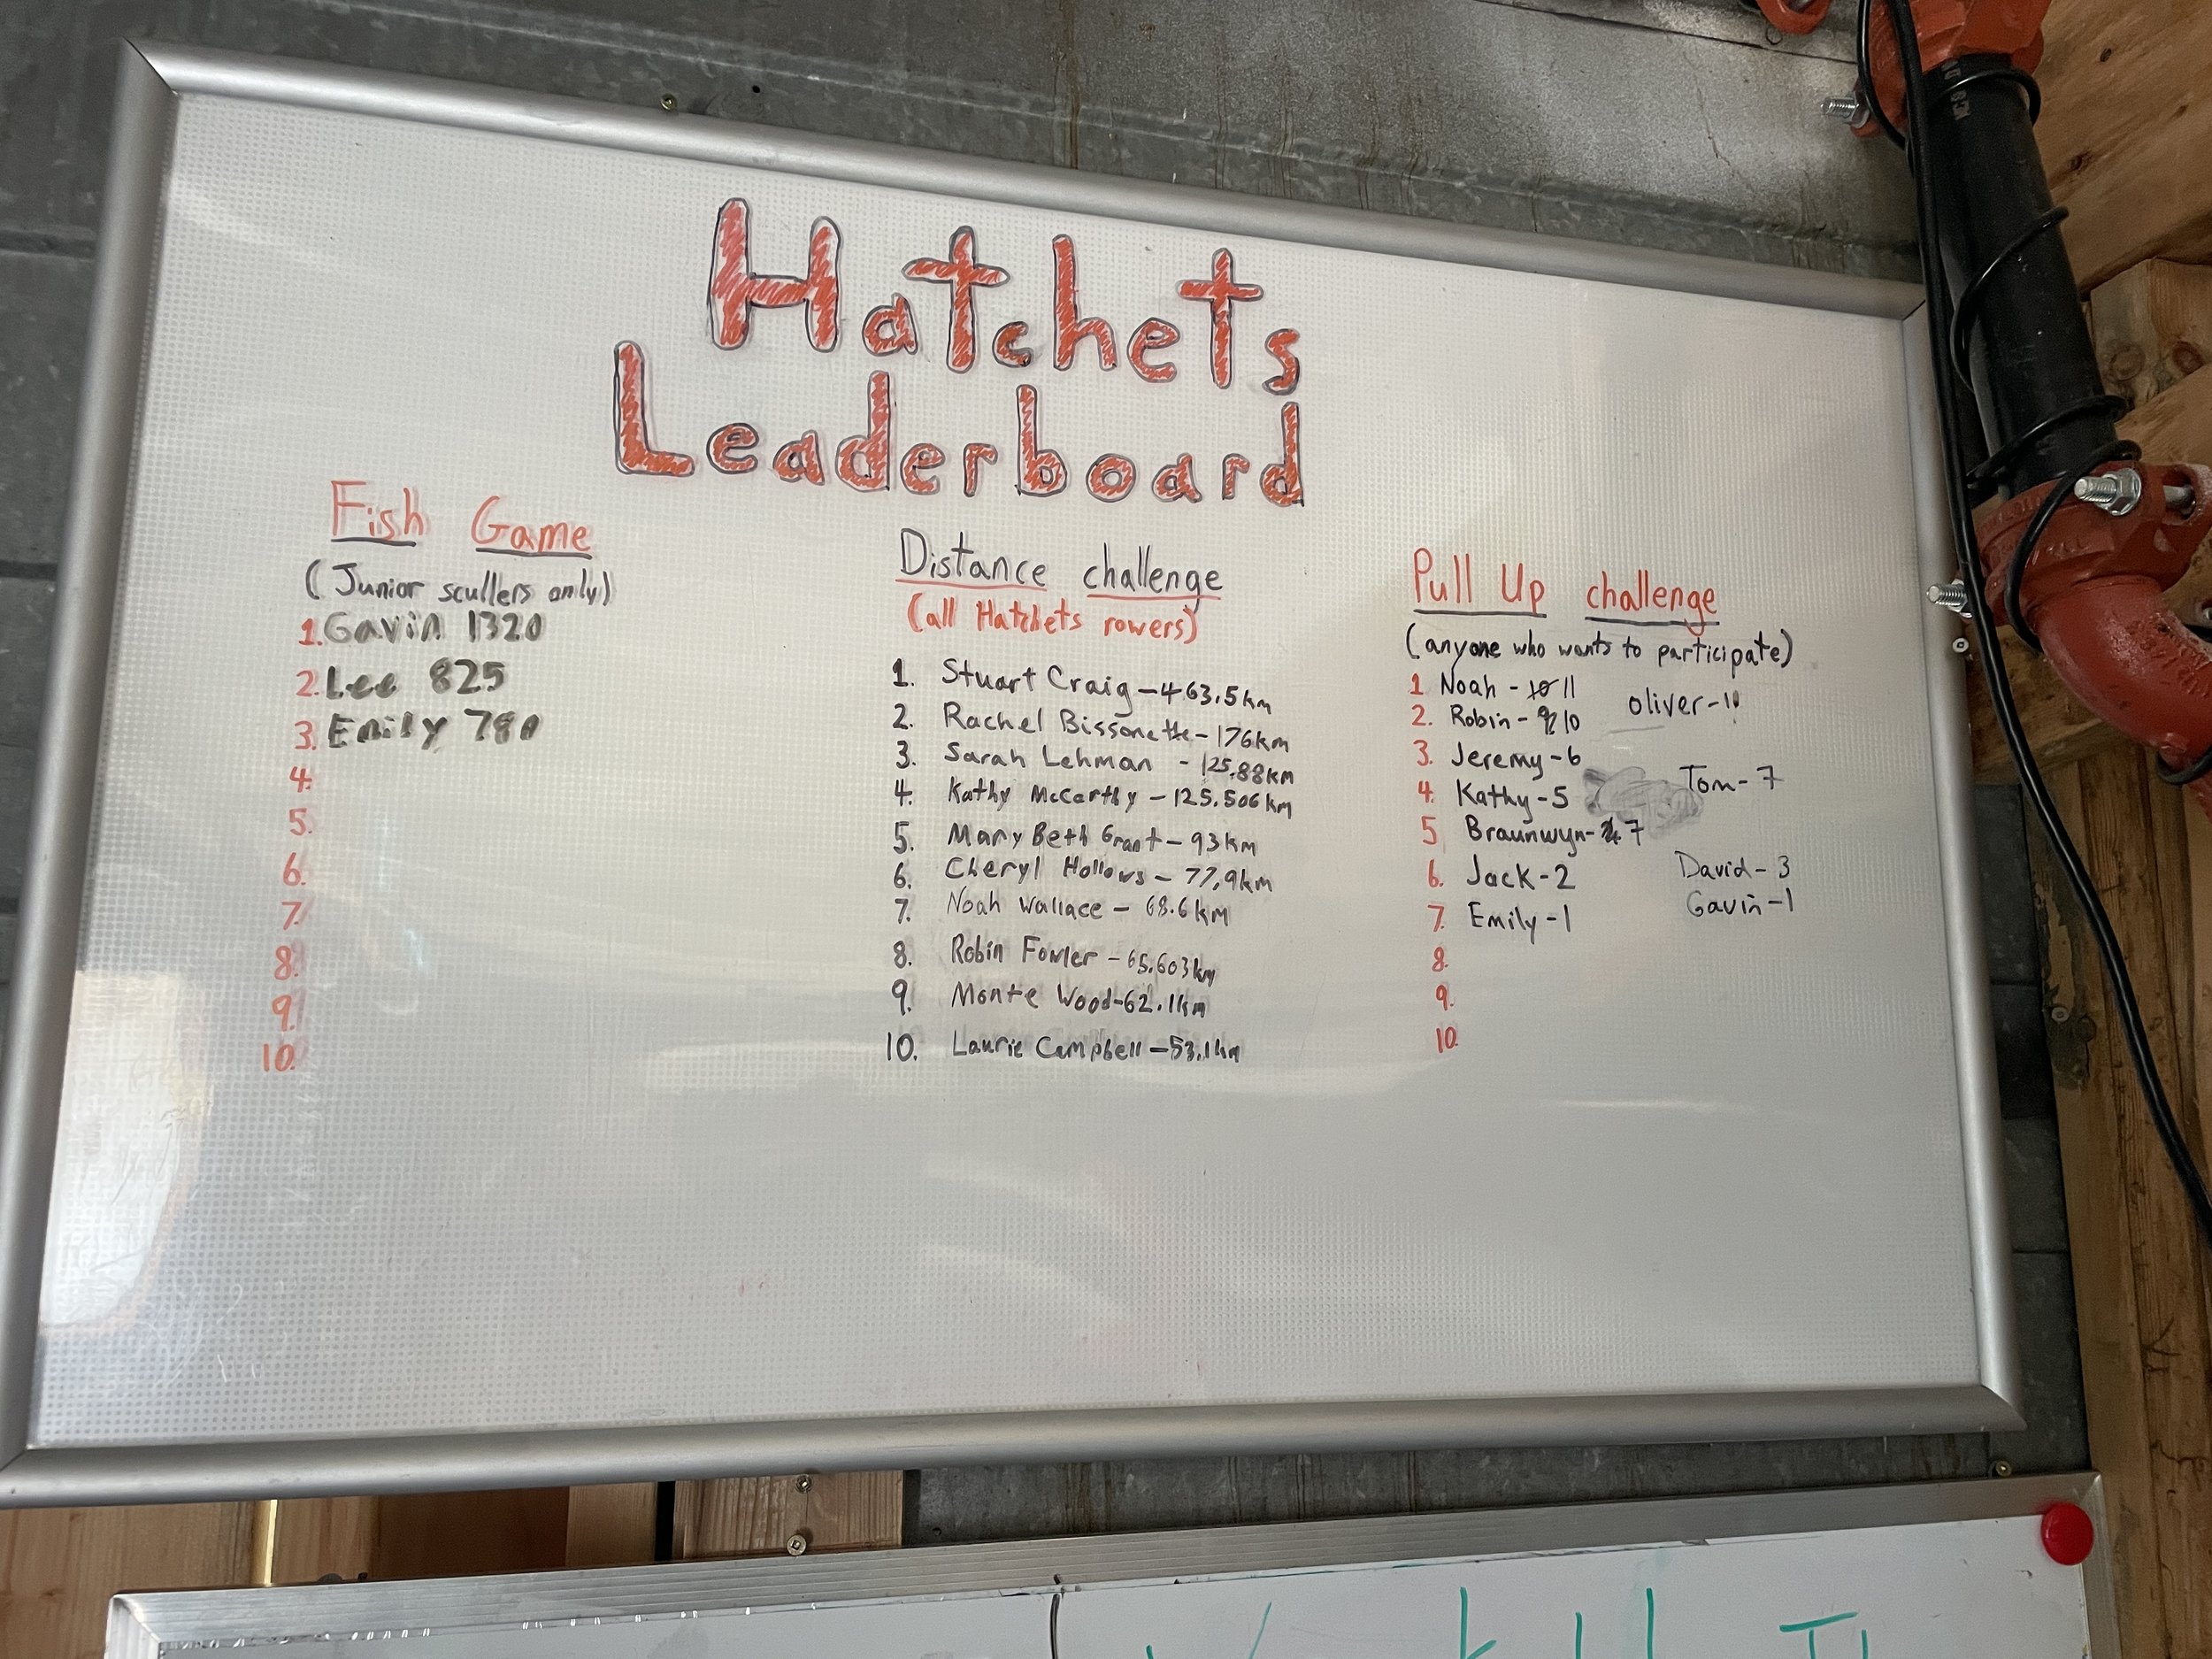 Hatchets
Leaderboard
Fish Game
(Junior scullers only)
1. Gavin 1320
2. Lee 825
3. Emily 780
4.
5.
6.
7.
8.
9.
10.
Distance challenge
(all Hatchets rowers)
1. Stuart Craig - 463.5km
2. Rachel Bissonette - 176km
3. Sarah Lehman - 125.88km
4. Kathy McCarthy - 125.506km
5. Mary Beth Grant - 93km
6. Cheryl Hollows - 77.9km
7. Noah Wallace - 68.6km
8. Robin Fowler - 65.603km
9. Monte Wood - 62.1km
10. Laurie Campbell - 53.1km
Pull Up challenge
(anyone who wants to participate)
1. Noah - 10 11
2. Robin - 10
3. Jeremy - 6
4. Kathy - 5
5. Braunwyn - 7
6. Jack - 2
7. Emily - 1
8.
9.
10.
Oliver -
Tom - 7
David - 3
Gavin - 1